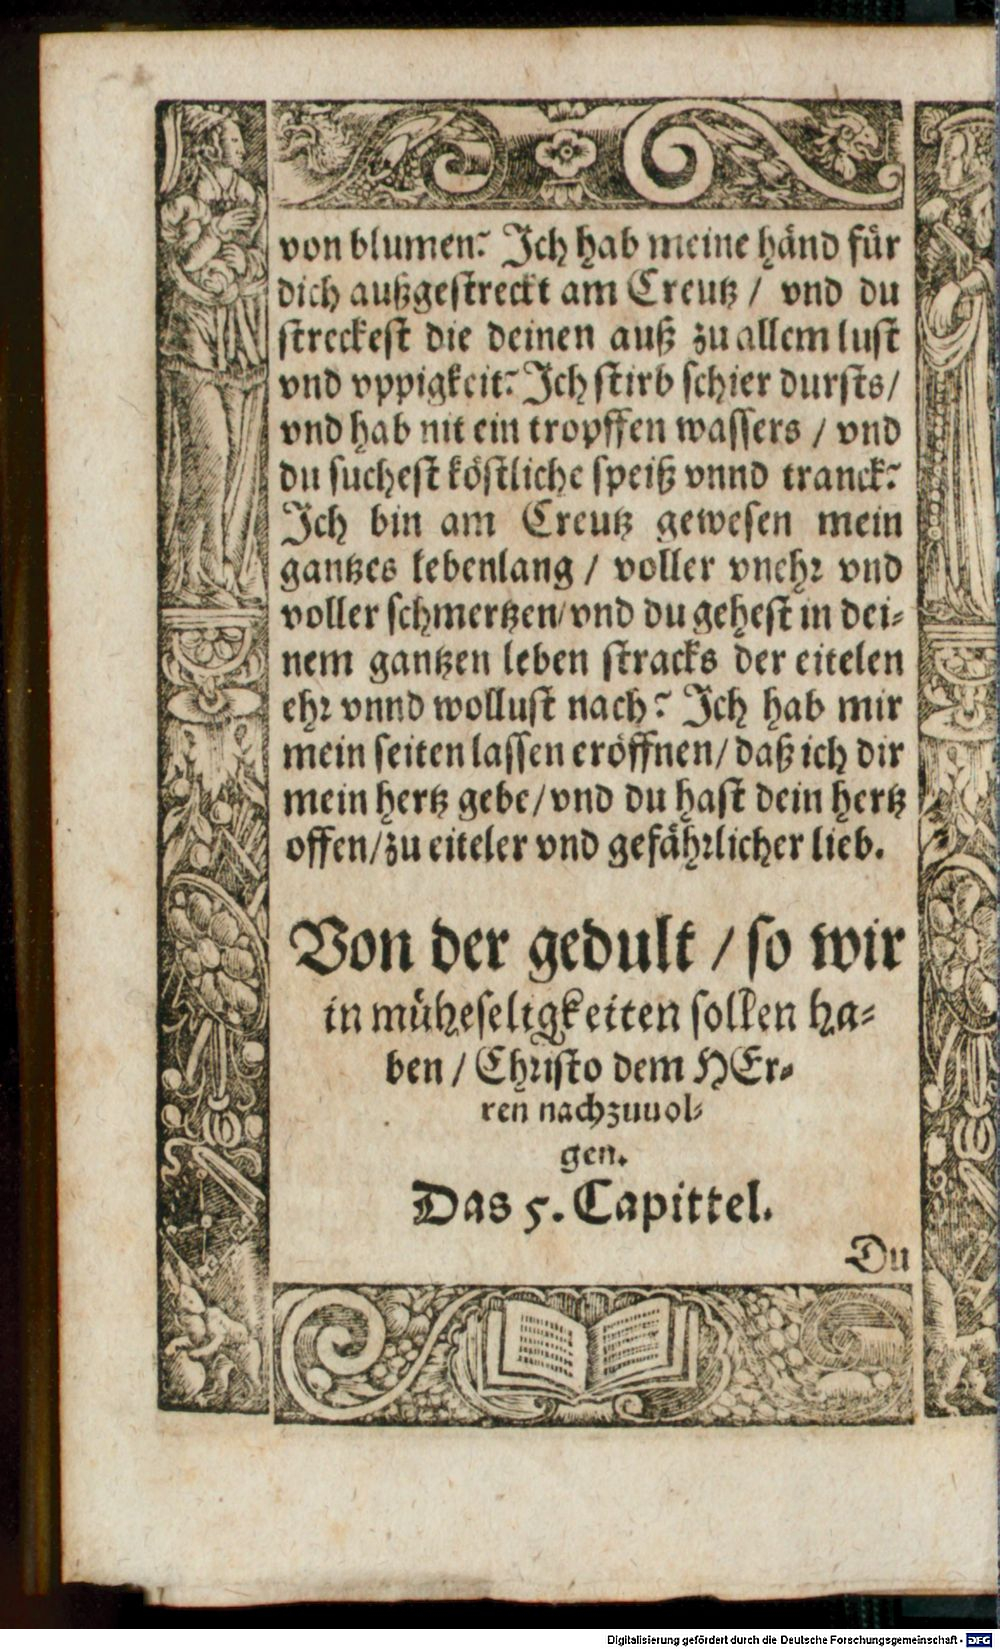 von blumen? Ich hab meine händ für
dich außgestreckt am Creutz / vnd du
streckest die deinen auß zu allem lust
vnd vppigkeit? Ich stirb schier dursts /
vnd hab nit ein tropffen wassers / vnd
du suchest köstliche speiß vnnd tranck?
Ich bin am Creutz gewesen mein
gantzes lebenlang / voller vnehr vnd
voller schmertzen/ vnd du gehest in dei-
nem gantzen leben stracks der eitelen
ehr vnnd wollust nach? Ich hab mir
mein seiten lassen eröffnen / daß ich dir
mein hertz gebe / vnd du hast dein hertz
offen / zu eiteler vnd gefährlicher lieb.
Von der gedult / so wir
in müheseligkeiten sollen ha-
ben / Christo dem HEr-
ren nachzuuol-
gen.
Das 5. Capittel.
Du
Digitalisierung gefördert durch die Deutsche Forschungsgemeinschaft - DFG